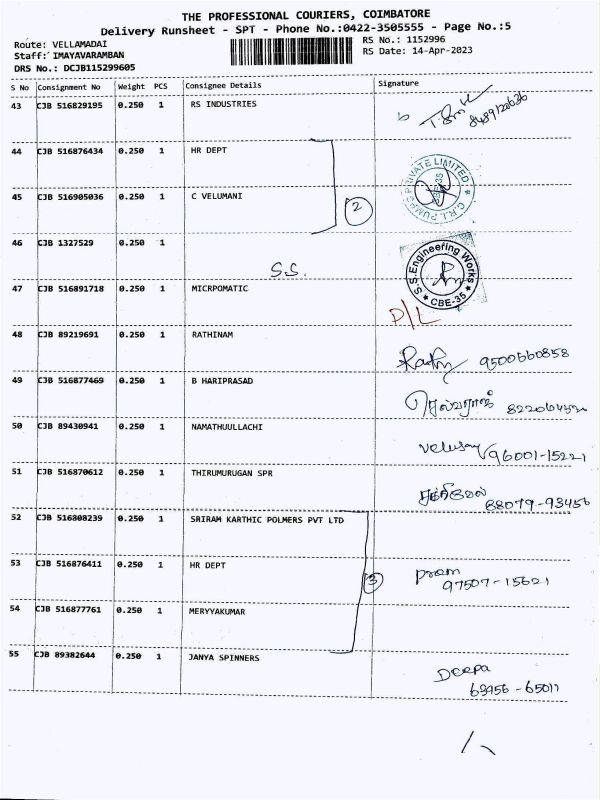 THE PROFESSIONAL COURIERS, COIMBATORE
Delivery Runsheet - SPT - Phone No.:0422-3505555 - Page No.:5
Route: VELLAMADAI
Staff: IMAYAVARAMBAN
DRS No.: DCJB115299605
RS No.: 1152996
RS Date: 14-Apr-2023
S No Consignment No Weight PCS Consignee Details Signature
43 CJB 516829195 0.250 1 RS INDUSTRIES
44 CJB 516876434 0.250 1 HR DEPT
45 CJB 516905036 0.250 1 C VELUMANI
2
C.R.I. PUMPS PRIVATE LIMITED CBE-35
46 CJB 1327529 0.250 1
S.S.
S.S.Engineering Works CBE-35
47 CJB 516891718 0.250 1 MICRPOMATIC
D/L
48 CJB 89219691 0.250 1 RATHINAM
9500660858
49 CJB 516877469 0.250 1 B HARIPRASAD
செல்வராஜ்
50 CJB 89430941 0.250 1 NAMATHUULLACHI
Velusamy 96001-15221
51 CJB 516870612 0.250 1 THIRUMURUGAN SPR
சக்திவேல் 88079-93456
52 CJB 516808239 0.250 1 SRIRAM KARTHIC POLMERS PVT LTD
53 CJB 516876411 0.250 1 HR DEPT
3
Prem 97507-15621
54 CJB 516877761 0.250 1 MERYYAKUMAR
55 CJB 89382644 0.250 1 JANYA SPINNERS
Deepa
63956-65011